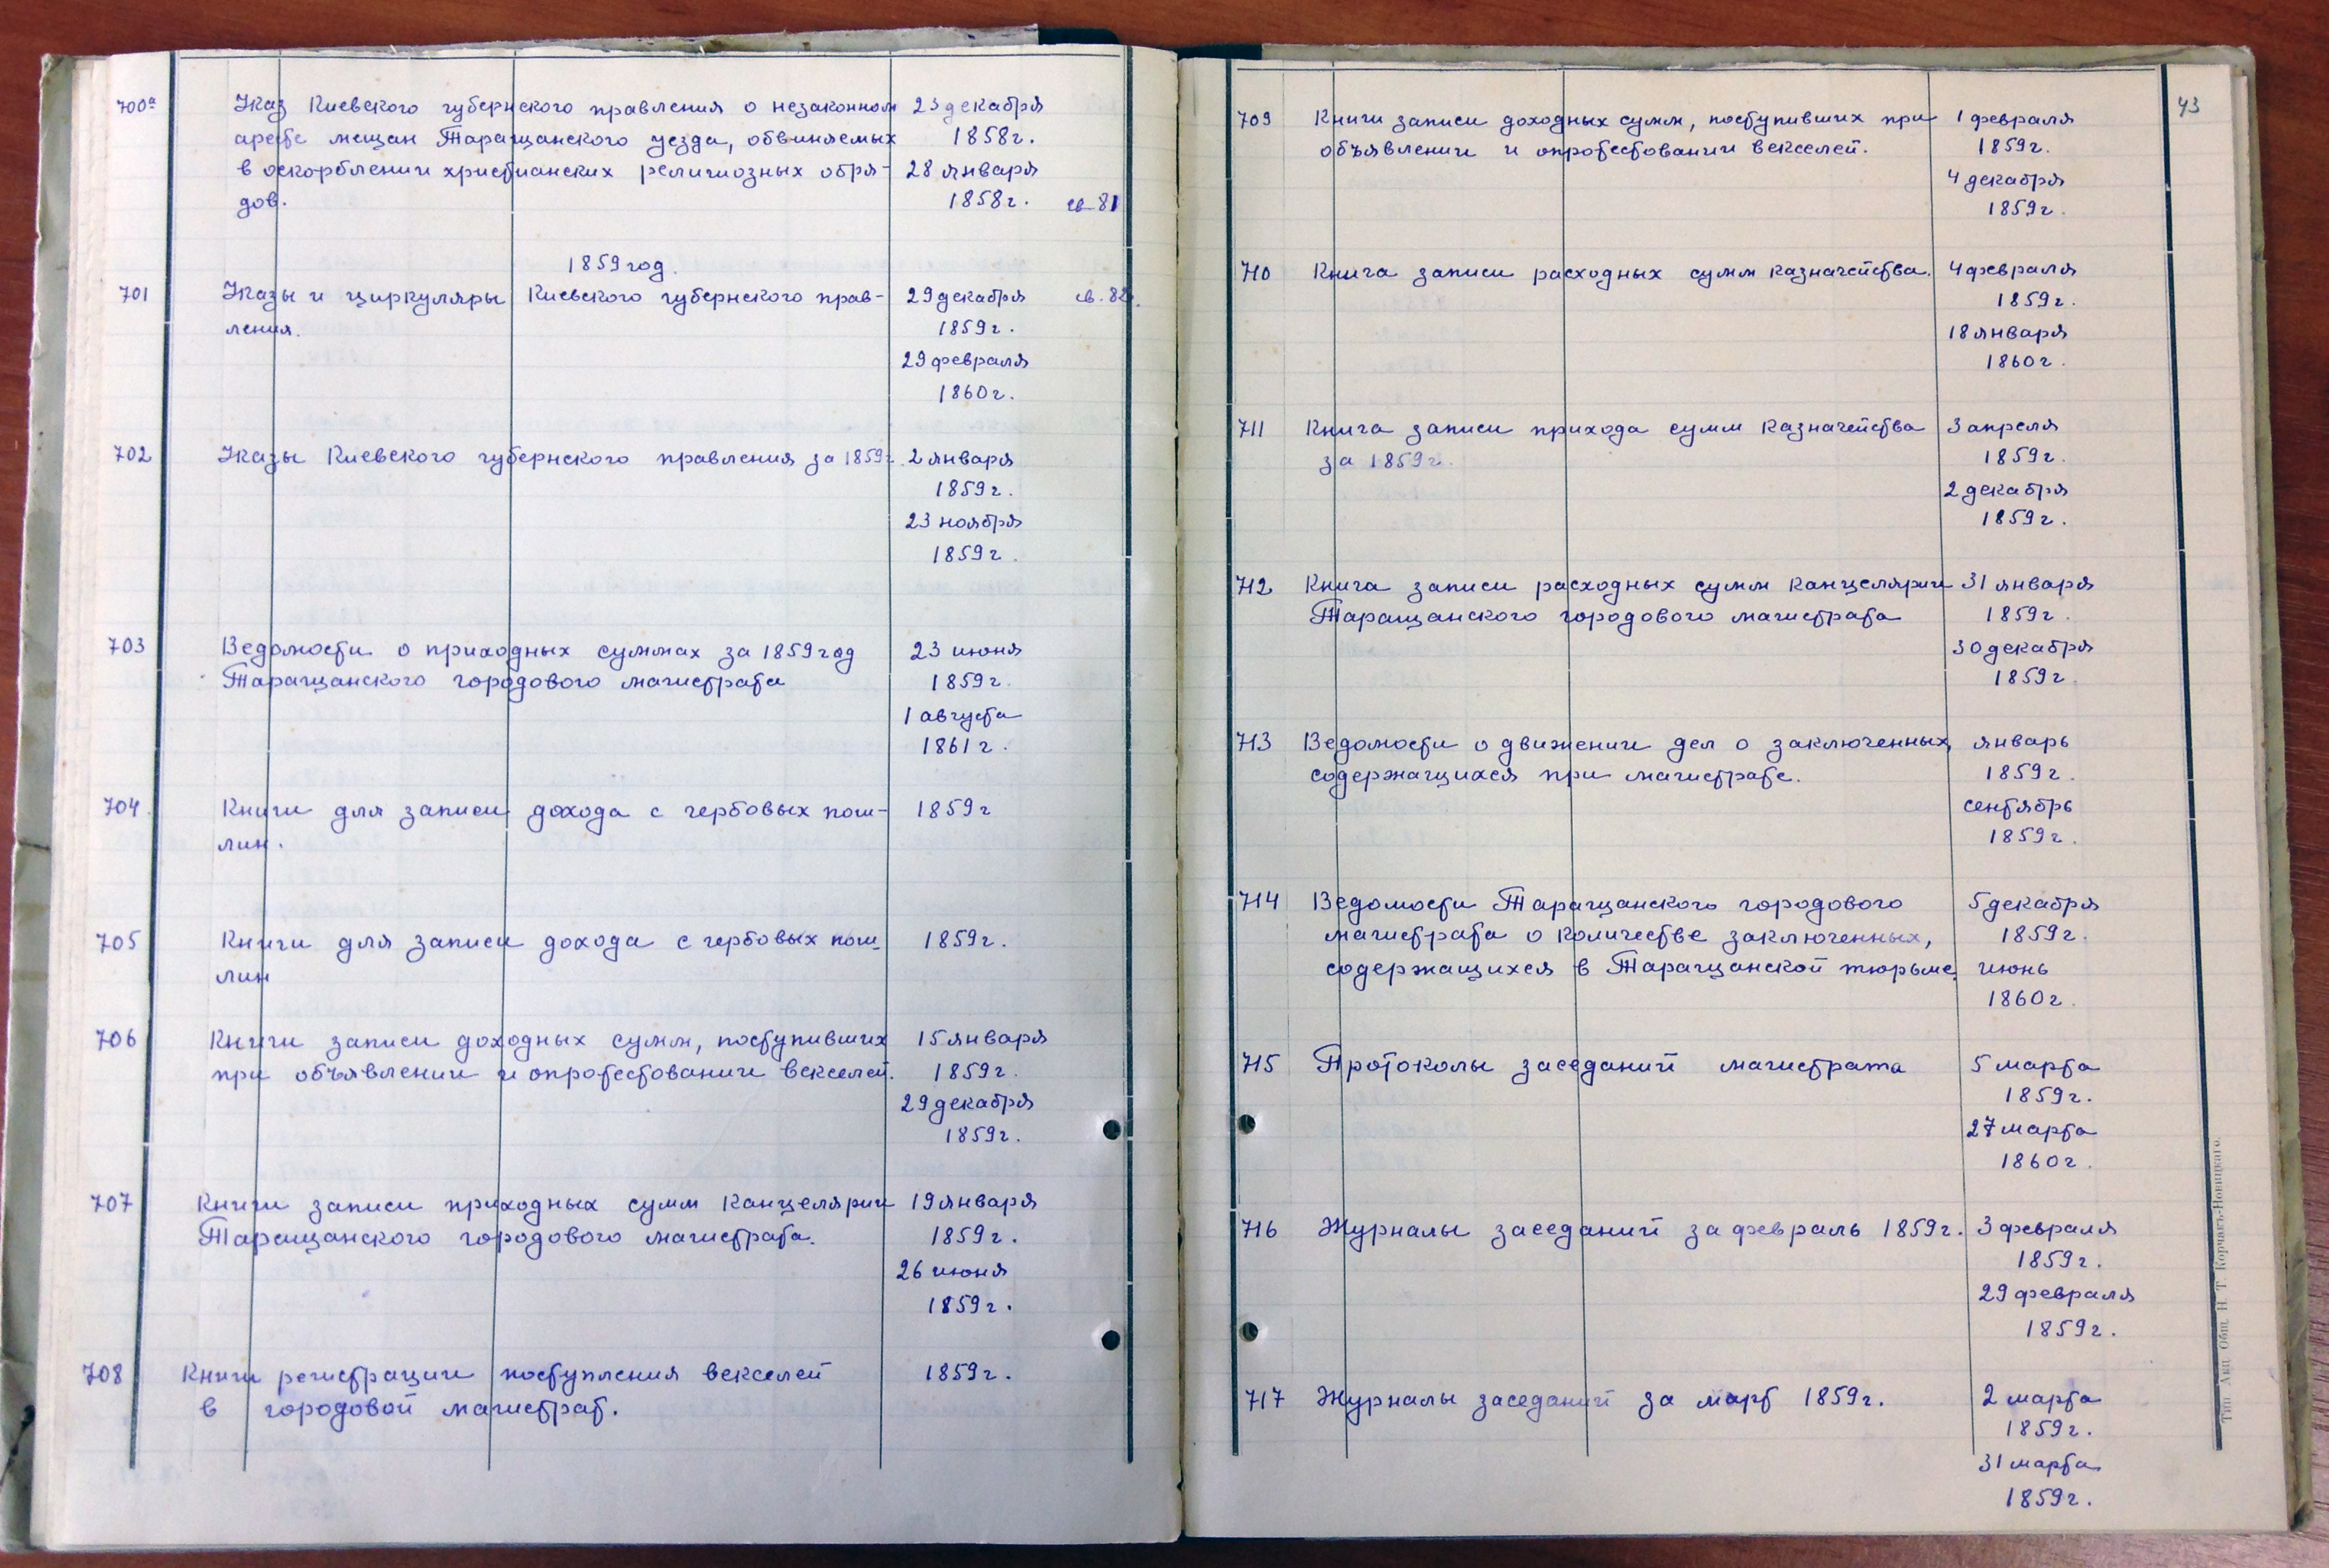 700а Указ Киевского губернского правления о незаконном 23 декабря
аресте мещан Таращанского уезда, обвиняемых 1858г.
в оскорблении христианских религиозных обря- 28 января
дов. 1858г. св 81
1859 год.
701 Указы и циркуляры Киевского губернского прав- 29 декабря св. 82.
ления. 1859г.
29 февраля
1860г.
702 Указы Киевского губернского правления за 1859г. 2 января
1859г.
23 ноября
1859г.
703 Ведомости о приходных суммах за 1859 год 23 июня
Таращанского городового магистрата 1859г.
1 августа
1861г.
704 Книги для записи дохода с гербовых пош- 1859г
лин.
705 Книги для записи дохода с гербовых пош- 1859г.
лин
706 Книги записи доходных сумм, поступивших 15 января
при объявлении и опротестовании векселей. 1859г.
29 декабря
1859г.
707 Книги записи приходных сумм канцелярии 19 января
Таращанского городового магистрата. 1859г.
26 июня
1859г.
708 Книги регистрации поступления векселей 1859г.
в городовой магистрат.
43
709 Книги записи доходных сумм, поступивших при 1 февраля
объявлении и опротестовании векселей. 1859г.
4 декабря
1859г.
710 Книга записи расходных сумм казначейства. 4 февраля
1859г.
18 января
1860г.
711 Книга записи прихода сумм казначейства 3 апреля
за 1859г. 1859г.
2 декабря
1859г.
712 Книга записи расходных сумм канцелярии 31 января
Таращанского городового магистрата 1859г.
30 декабря
1859г.
713 Ведомости о движении дел о заключенных, январь
содержащихся при магистрате. 1859г.
сентябрь
1859г.
714 Ведомости Таращанского городового 5 декабря
магистрата о количестве заключенных, 1859г.
содержащихся в Таращанской тюрьме. июнь
1860г.
715 Протоколы заседаний магистрата 5 марта
1859г.
27 марта
1860г.
716 Журналы заседаний за февраль 1859г. 3 февраля
1859г.
29 февраля
1859г.
717 Журналы заседаний за март 1859г. 2 марта
1859г.
31 марта
1859г.
Тип. Акц. Общ. Н. Т. Корчакъ-Новицкаго.